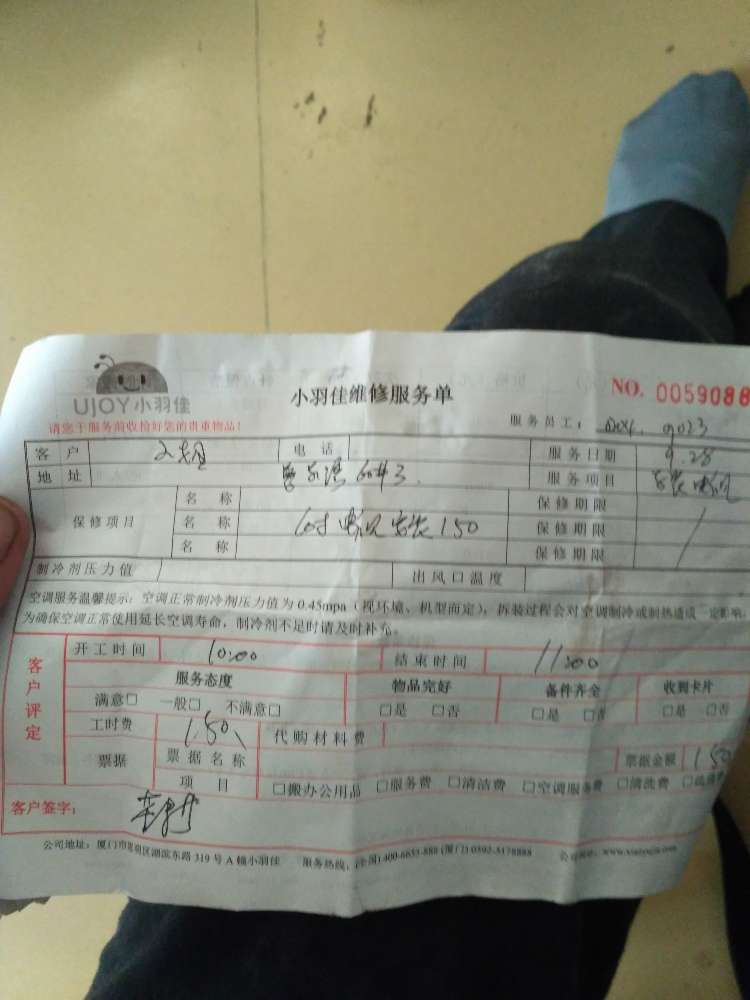 UJOY小羽佳
小羽佳维修服务单
NO. 0059088
请您于服务前收检好您的贵重物品!
服务员工: 9023
客户 电话 服务日期 9.28
地址 服务项目 安装电视
保修项目 名称 保修期限
名称 60寸电视安装150 保修期限
名称 保修期限
制冷剂压力值 出风口温度
空调服务温馨提示:空调正常制冷剂压力值为0.45mpa(视环境、机型而定),拆装过程会对空调制冷或制热造成一定影响,
为确保空调正常使用延长空调寿命,制冷剂不足时请及时补充。
客户评定
开工时间 10:00 结束时间 11:00
服务态度 物品完好 备件齐全 收到卡片
满意□ 一般□ 不满意□ □是 □否 □是 □否 □是 □否
工时费 150 代购材料费
票据 票据名称 票据金额 150
项目 □搬办公用品 □服务费 □清洁费 □空调服务费 □清洗费
客户签字:
公司地址:厦门市思明区湖滨东路319号A幢小羽佳 服务热线:(全国)400-6633-888 (厦门)0592-5178888 公司网址:www.xiaoyujia.com